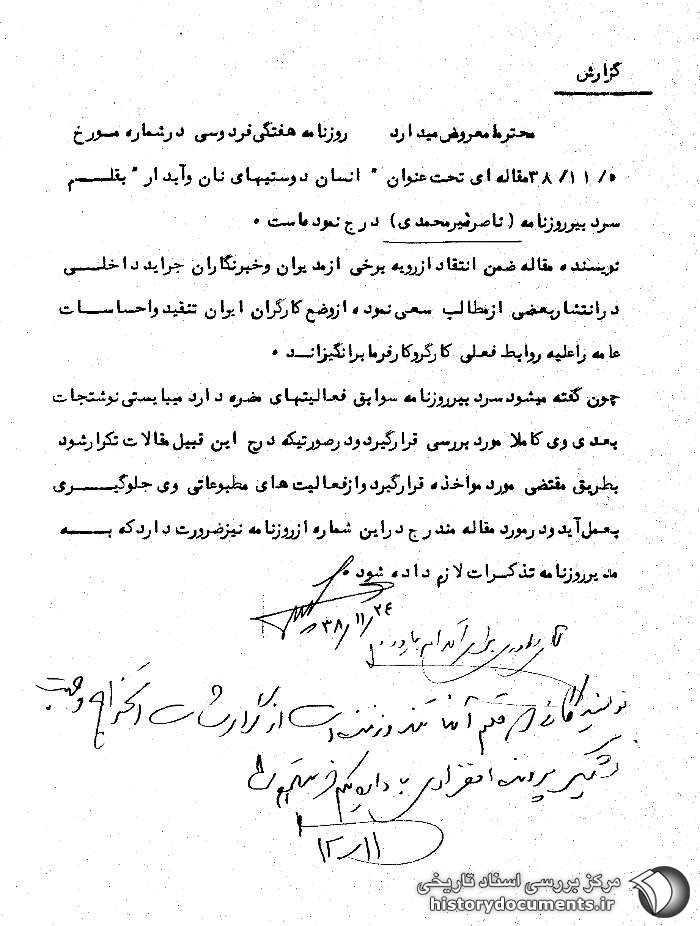 گزارش
محترما معروض میدارد روزنامه هفتگی فردوسی در شماره مورخ
۵/۱۱/۳۸ مقاله ای تحت عنوان " انسان دوستیهای نان و آبدار " بقلم
سردبیر روزنامه (ناصر نیرمحمدی) درج نموده است .
نویسنده مقاله ضمن انتقاد از رویه برخی از مدیران و خبرنگاران جراید داخلی
در انتشار بعضی از مطالب سعی نموده از وضع کارگران ایران تنقید و احساسات
عامه را علیه روابط فعلی کارگر و کارفرما برانگیزاند .
چون گفته میشود سردبیر روزنامه سوابق فعالیتهای مضره دارد میبایستی نوشتجات
بعدی وی کاملا مورد بررسی قرار گیرد و در صورتیکه درج این قبیل مقالات تکرار شود
بطریق مقتضی مورد مواخذه قرار گیرد و از فعالیت های مطبوعاتی وی جلوگیری
بعمل آید و در مورد مقاله مندرج در این شماره از روزنامه نیز ضرورت دارد که به
مدیر روزنامه تذکرات لازم داده شود .
۳۸/۱۱/۲۴
برای اقدام
نویسندگانی که قلم آنها تند و زننده است از گزارشات استخراج و جهت
تشکیل پرونده انفرادی به دایره یکم
۱۲/۱۱
مرکز بررسی اسناد تاریخی
historydocuments.ir